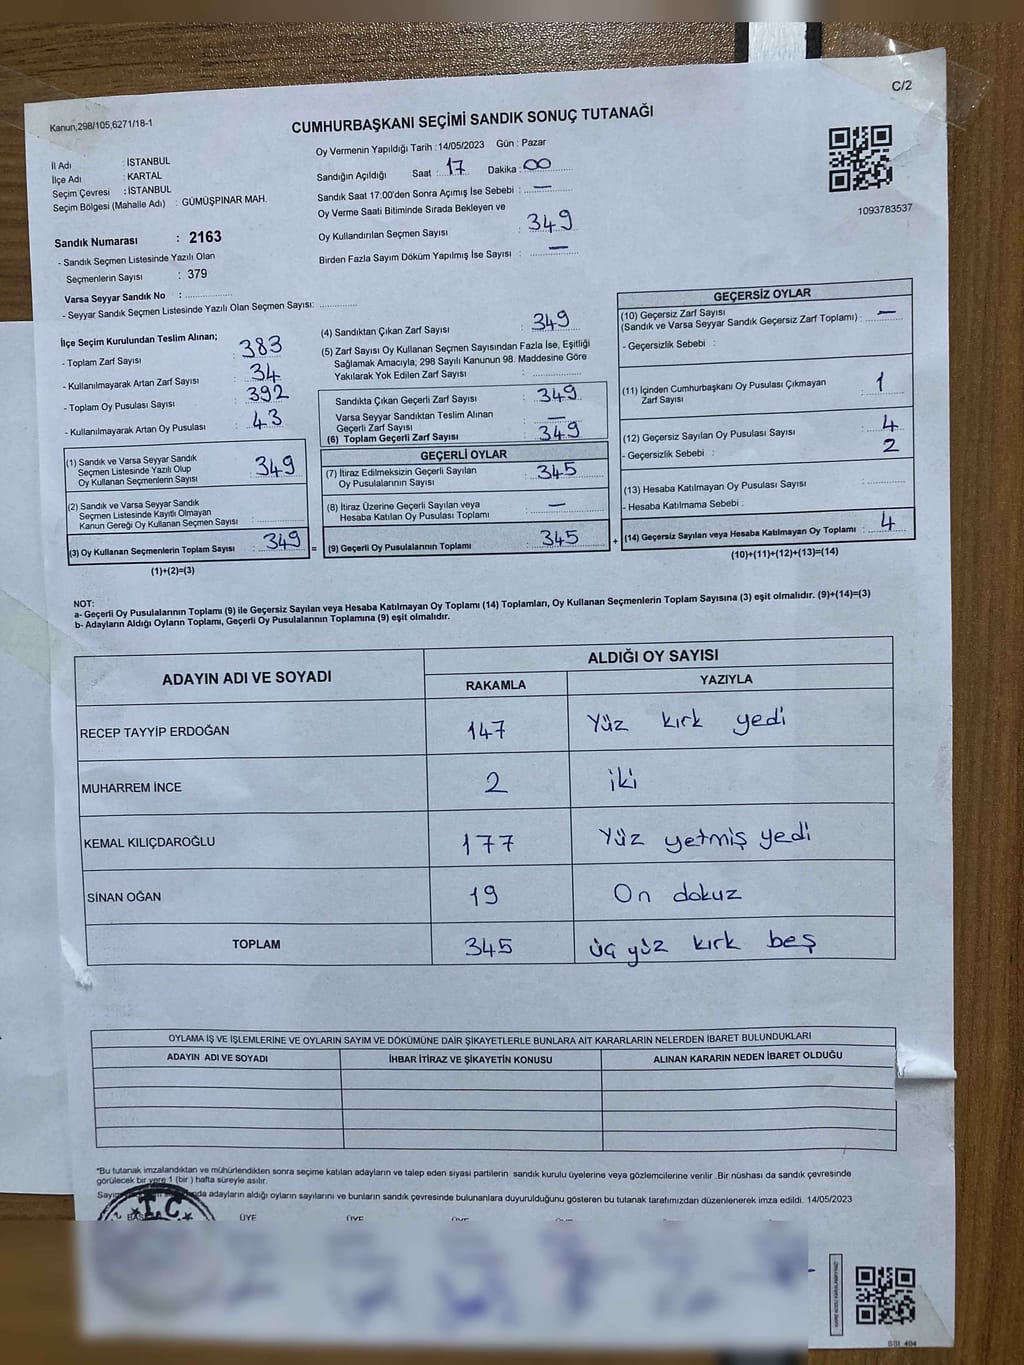 C/2
Kanun,298/105,6271/18-1
CUMHURBAŞKANI SEÇİMİ SANDIK SONUÇ TUTANAĞI
İl Adı : İSTANBUL
İlçe Adı : KARTAL
Seçim Çevresi : İSTANBUL
Seçim Bölgesi (Mahalle Adı) : GÜMÜŞPINAR MAH.
Sandık Numarası : 2163
- Sandık Seçmen Listesinde Yazılı Olan
Seçmenlerin Sayısı : 379
Varsa Seyyar Sandık No :
- Seyyar Sandık Seçmen Listesinde Yazılı Olan Seçmen Sayısı:
Oy Vermenin Yapıldığı Tarih :14/05/2023 Gün : Pazar
Sandığın Açıldığı Saat : 17 Dakika : 00
Sandık Saat 17:00'den Sonra Açımış İse Sebebi : —
Oy Verme Saati Bitiminde Sırada Bekleyen ve
Oy Kullandırılan Seçmen Sayısı : 349
Birden Fazla Sayım Döküm Yapılmış İse Sayısı : —
1093783537
İlçe Seçim Kurulundan Teslim Alınan;
- Toplam Zarf Sayısı : 383
- Kullanılmayarak Artan Zarf Sayısı : 34
- Toplam Oy Pusulası Sayısı : 392
- Kullanılmayarak Artan Oy Pusulası : 43
(1) Sandık ve Varsa Seyyar Sandık
Seçmen Listesinde Yazılı Olup
Oy Kullanan Seçmenlerin Sayısı : 349
(2) Sandık ve Varsa Seyyar Sandık
Seçmen Listesinde Kayıtlı Olmayan
Kanun Gereği Oy Kullanan Seçmen Sayısı :
(3) Oy Kullanan Seçmenlerin Toplam Sayısı : 349
(1)+(2)=(3)
(4) Sandıktan Çıkan Zarf Sayısı : 349
(5) Zarf Sayısı Oy Kullanan Seçmen Sayısından Fazla İse, Eşitliği
Sağlamak Amacıyla; 298 Sayılı Kanunun 98. Maddesine Göre
Yakılarak Yok Edilen Zarf Sayısı :
Sandıkta Çıkan Geçerli Zarf Sayısı : 349
Varsa Seyyar Sandıktan Teslim Alınan
Geçerli Zarf Sayısı : —
(6) Toplam Geçerli Zarf Sayısı : 349
GEÇERLİ OYLAR
(7) İtiraz Edilmeksizin Geçerli Sayılan
Oy Pusulalarının Sayısı : 345
(8) İtiraz Üzerine Geçerli Sayılan veya
Hesaba Katılan Oy Pusulası Toplamı : —
= (9) Geçerli Oy Pusulalarının Toplamı : 345
GEÇERSİZ OYLAR
(10) Geçersiz Zarf Sayısı
(Sandık ve Varsa Seyyar Sandık Geçersiz Zarf Toplamı) : —
- Geçersizlik Sebebi :
(11) İçinden Cumhurbaşkanı Oy Pusulası Çıkmayan
Zarf Sayısı : 1
(12) Geçersiz Sayılan Oy Pusulası Sayısı : 4
- Geçersizlik Sebebi : 2
(13) Hesaba Katılmayan Oy Pusulası Sayısı :
- Hesaba Katılmama Sebebi :
+ (14) Geçersiz Sayılan veya Hesaba Katılmayan Oy Toplamı : 4
(10)+(11)+(12)+(13)=(14)
NOT:
a- Geçerli Oy Pusulalarının Toplamı (9) ile Geçersiz Sayılan veya Hesaba Katılmayan Oy Toplamı (14) Toplamları, Oy Kullanan Seçmenlerin Toplam Sayısına (3) eşit olmalıdır. (9)+(14)=(3)
b- Adayların Aldığı Oyların Toplamı, Geçerli Oy Pusulalarının Toplamına (9) eşit olmalıdır.
ADAYIN ADI VE SOYADI ALDIĞI OY SAYISI
RAKAMLA YAZIYLA
RECEP TAYYİP ERDOĞAN 147 Yüz kırk yedi
MUHARREM İNCE 2 iki
KEMAL KILIÇDAROĞLU 177 Yüz yetmiş yedi
SİNAN OĞAN 19 On dokuz
TOPLAM 345 üç yüz kırk beş
OYLAMA İŞ VE İŞLEMLERİNE VE OYLARIN SAYIM VE DÖKÜMÜNE DAİR ŞİKAYETLERLE BUNLARA AİT KARARLARIN NELERDEN İBARET BULUNDUKLARI
ADAYIN ADI VE SOYADI İHBAR İTİRAZ VE ŞİKAYETİN KONUSU ALINAN KARARIN NEDEN İBARET OLDUĞU
*Bu tutanak imzalandıktan ve mühürlendikten sonra seçime katılan adayların ve talep eden siyasi partilerin sandık kurulu üyelerine veya gözlemcilerine verilir .Bir nüshası da sandık çevresinde
görülecek bir yere 1 (bir ) hafta süreyle asılır.
adayların aldığı oyların sayılarını ve bunların sandık çevresinde bulunanlara duyurulduğunu gösteren bu tutanak tarafımızdan düzenlenerek imza edildi. 14/05/2023
T.C.
ÜYE ÜYE ÜYE ÜYE